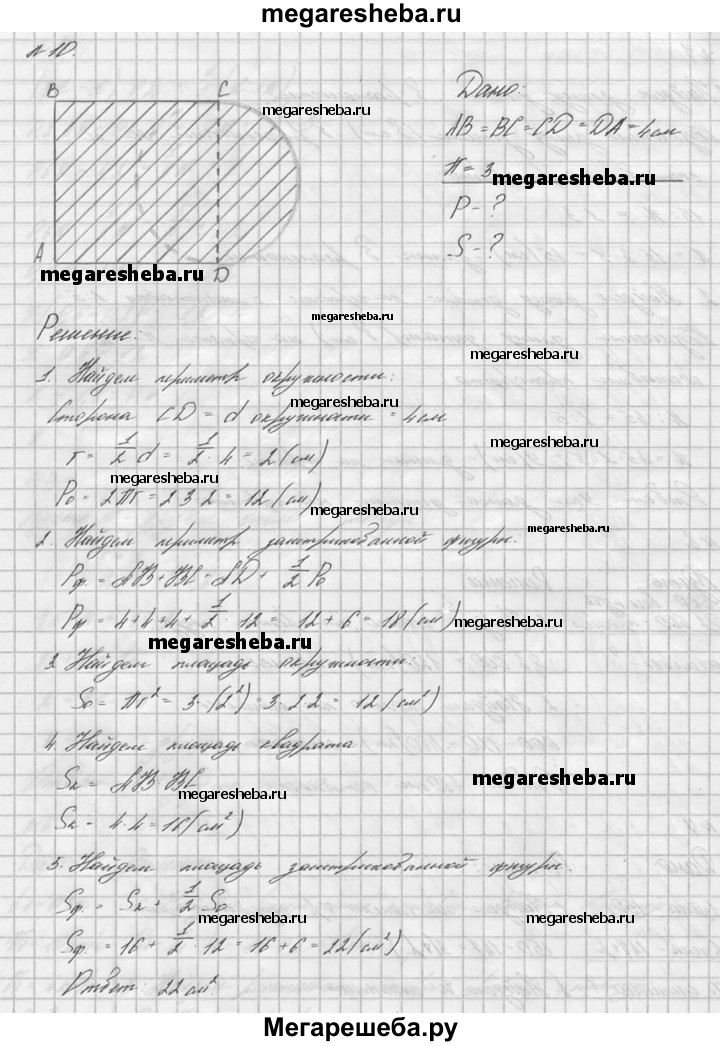 megaresheba.ru
№ 10.
B C
megaresheba.ru
Дано:
AB = BC = CD = DA = 4 см
П = 3
megaresheba.ru
P - ?
S - ?
A D
megaresheba.ru
megaresheba.ru
Решение:
megaresheba.ru
1. Найдем периметр окружности:
megaresheba.ru
Сторона CD = d окружности = 4 см
megaresheba.ru
r = 1/2 d = 1/2 · 4 = 2 (см)
megaresheba.ru
P₀ = 2Пr = 2·3·2 = 12 (см)
megaresheba.ru
megaresheba.ru
2. Найдем периметр заштрихованной фигуры.
Pф. = AB + BC + AD + 1/2 P₀
Pф = 4 + 4 + 4 + 1/2 · 12 = 12 + 6 = 18 (см)
megaresheba.ru
megaresheba.ru
3. Найдем площадь окружности:
S₀ = Пr² = 3 · (2²) = 3 · 2 · 2 = 12 (см²)
4. Найдем площадь квадрата
Sк = AB · BC
megaresheba.ru
megaresheba.ru
Sк = 4 · 4 = 16 (см²)
5. Найдем площадь заштрихованной фигуры.
Sф. = Sк + 1/2 S₀
megaresheba.ru
megaresheba.ru
Sф. = 16 + 1/2 · 12 = 16 + 6 = 22 (см²)
Ответ: 22 см².
Мегарешеба.ру